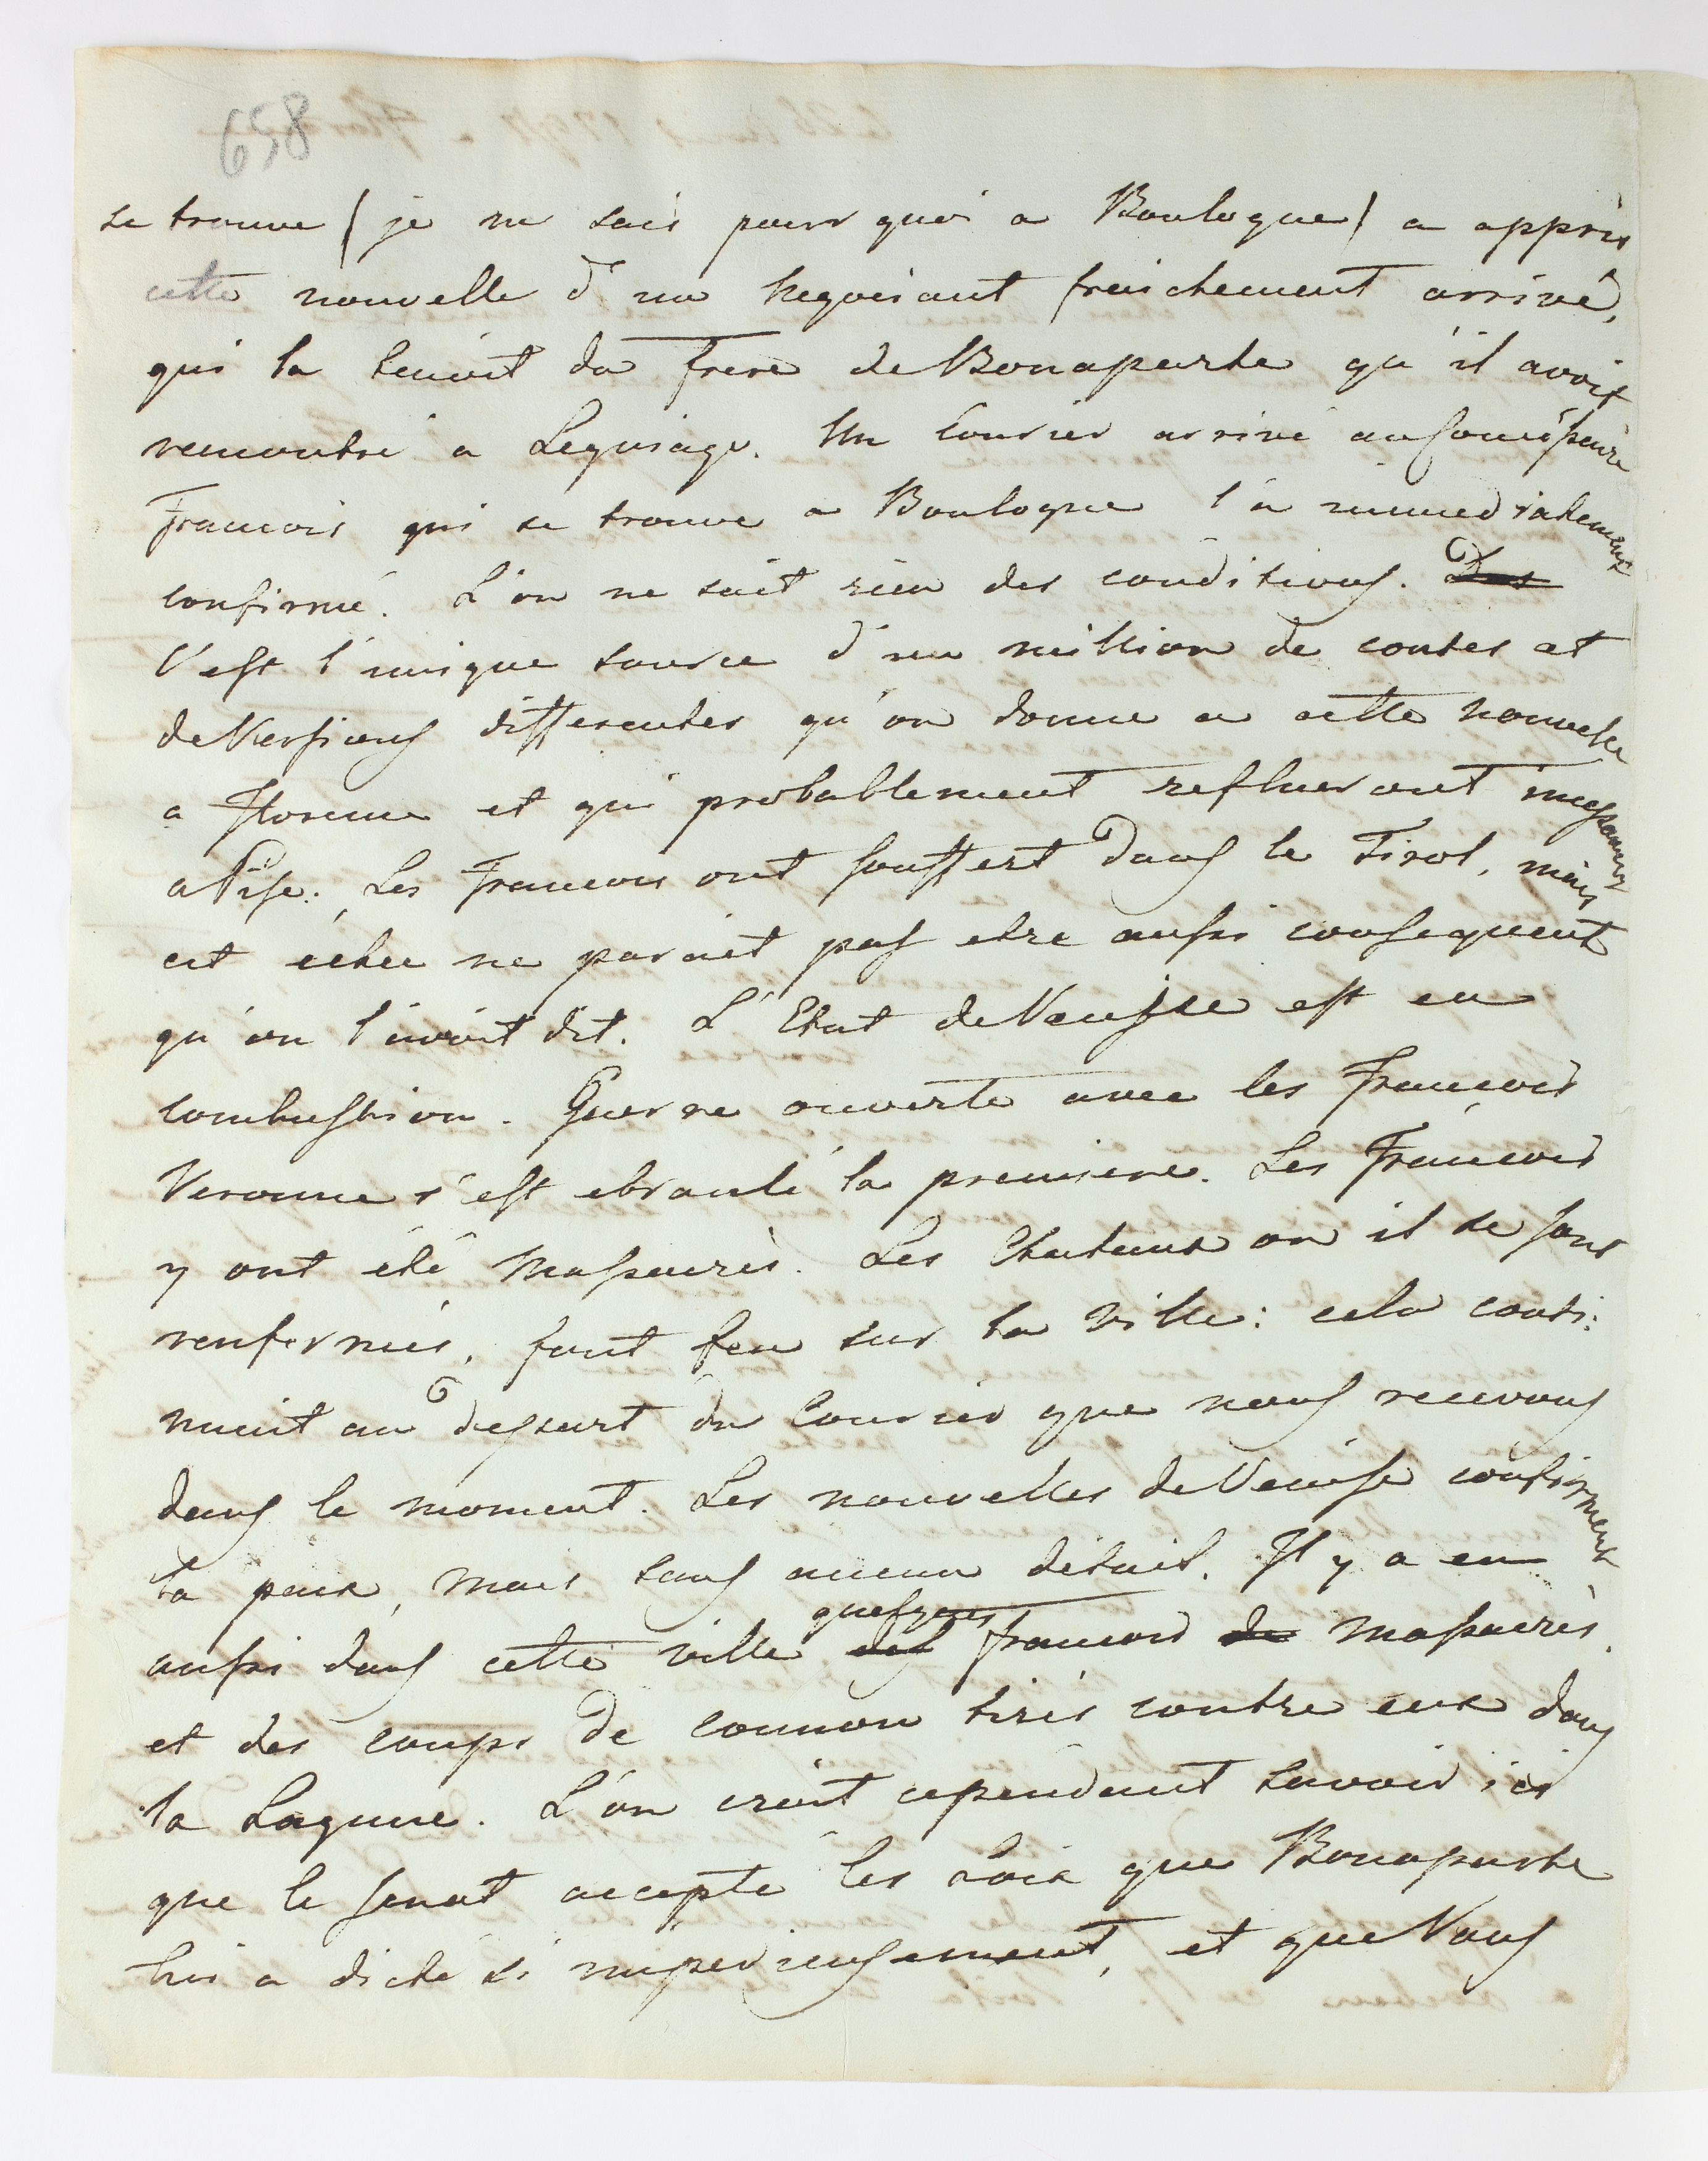 658
se trouve (je ne sais pourquoi a Boulogne) a appris
cette nouvelle d'un Negociant fraichement arrivé,
qui la tenoit du frere de Bonaparte qu'il avoit
rencontré a Un Courier arrivé
Francois qui se trouve a Boulogne l'a immediatement
confirmé. L'on ne sait rien des conditions.
C'est l'unique source d'un million de contes et
de Versions differentes qu'on donne a cette nouvelle
a Florence et qui probablement reflueront
a Pise. Les Francois ont souffert dans le Tirol, mais
cet échec ne paroit pas etre aussi consequent
qu'on l'avoit dit. L'Etat de Venise est en
combustion. Guerre ouverte avec les Francois
Veronne s'est ebranlé la premiere. Les Francois
y ont été Massacrés. Les Chateaux ou il se sont
renfermés, font feu sur la Ville: cela conti:
nuoit au depart du Courier que nous recevons
dans le moment. Les nouvelles de Venise confirment
la paix, mais sans aucun détail. Il y a eu
aussi dans cette ville des quelques francois de Massacrés
et des coups de connon tirés contre eux dans
la Lagune. L'on croit cependant savoir ici
que le Senat accepte les loix que Bonaparte
lui a dicté si imperieusement, et que Nous